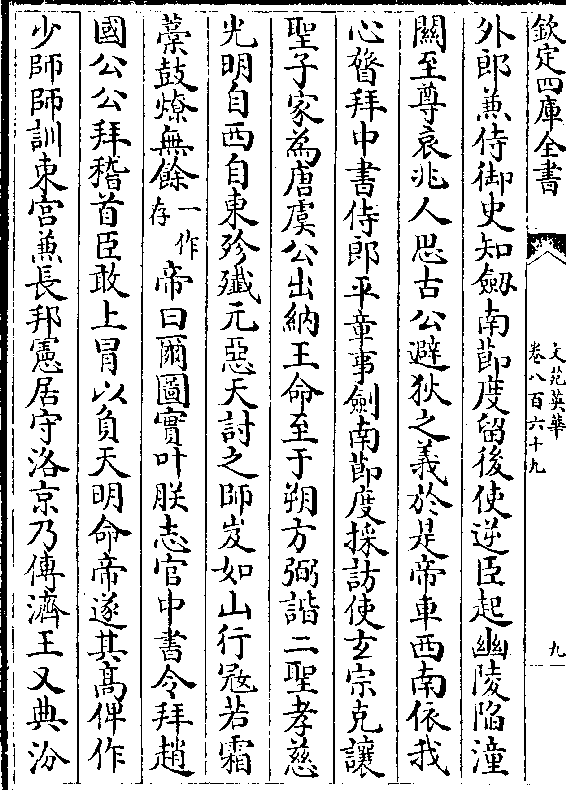 欽定四庫全書
文苑英華
卷八百六十九
九
外郎兼侍御史知劔南節度留後使逆臣起幽陵陷潼
關至尊哀兆人思古公避狄之義於是帝車西南依我
心膂拜中書侍郎平章事劍南節度採訪使玄宗克讓
聖子家為唐虞公出納王命至于朔方弼諧二聖孝慈
光明自西自東殄殲元惡天討之師岌如山行㓂若霜
藁鼓燎無餘一作存帝曰爾圖實叶朕志官中書令拜趙
國公公拜稽首臣敢上冒以負天明命帝遂其髙俾作
少師師訓東宫兼長邦憲居守洛京乃傅濟王又典汾